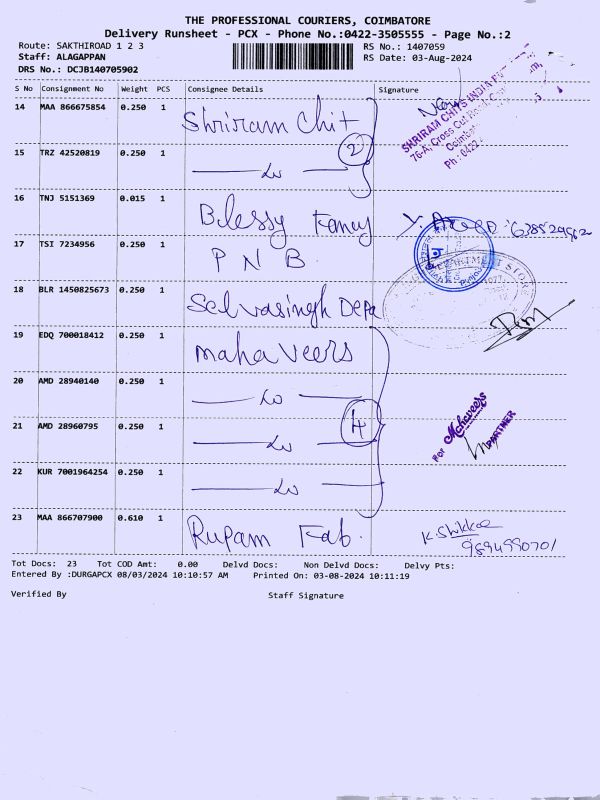 THE PROFESSIONAL COURIERS, COIMBATORE
Delivery Runsheet - PCX - Phone No.:0422-3505555 - Page No.:2
Route: SAKTHIROAD 1 2 3 RS No.: 1407059
Staff: ALAGAPPAN RS Date: 03-Aug-2024
DRS No.: DCJB140705902
S No Consignment No Weight PCS Consignee Details Signature
14 MAA 866675854 0.250 1 Shriram Chit
SHRIRAM CHITS INDIA
76-A, Cross Cut Road
Ph : 0422
15 TRZ 42520819 0.250 1 2
16 TNJ 5151369 0.015 1 Blessy Fancy
17 TSI 7234956 0.250 1 P N B
DEPARTMENT STORE
18 BLR 1450825673 0.250 1 Selvasingh Depa
19 EDQ 700018412 0.250 1 Mahaveers
20 AMD 28940140 0.250 1
21 AMD 28960795 0.250 1 4
For Mahaveers
PARTNER
22 KUR 7001964254 0.250 1
23 MAA 866707900 0.610 1 Rupam Fab.
9894990701
Tot Docs: 23 Tot COD Amt: 0.00 Delvd Docs: Non Delvd Docs: Delvy Pts:
Entered By :DURGAPCX 08/03/2024 10:10:57 AM Printed On: 03-08-2024 10:11:19
Verified By Staff Signature